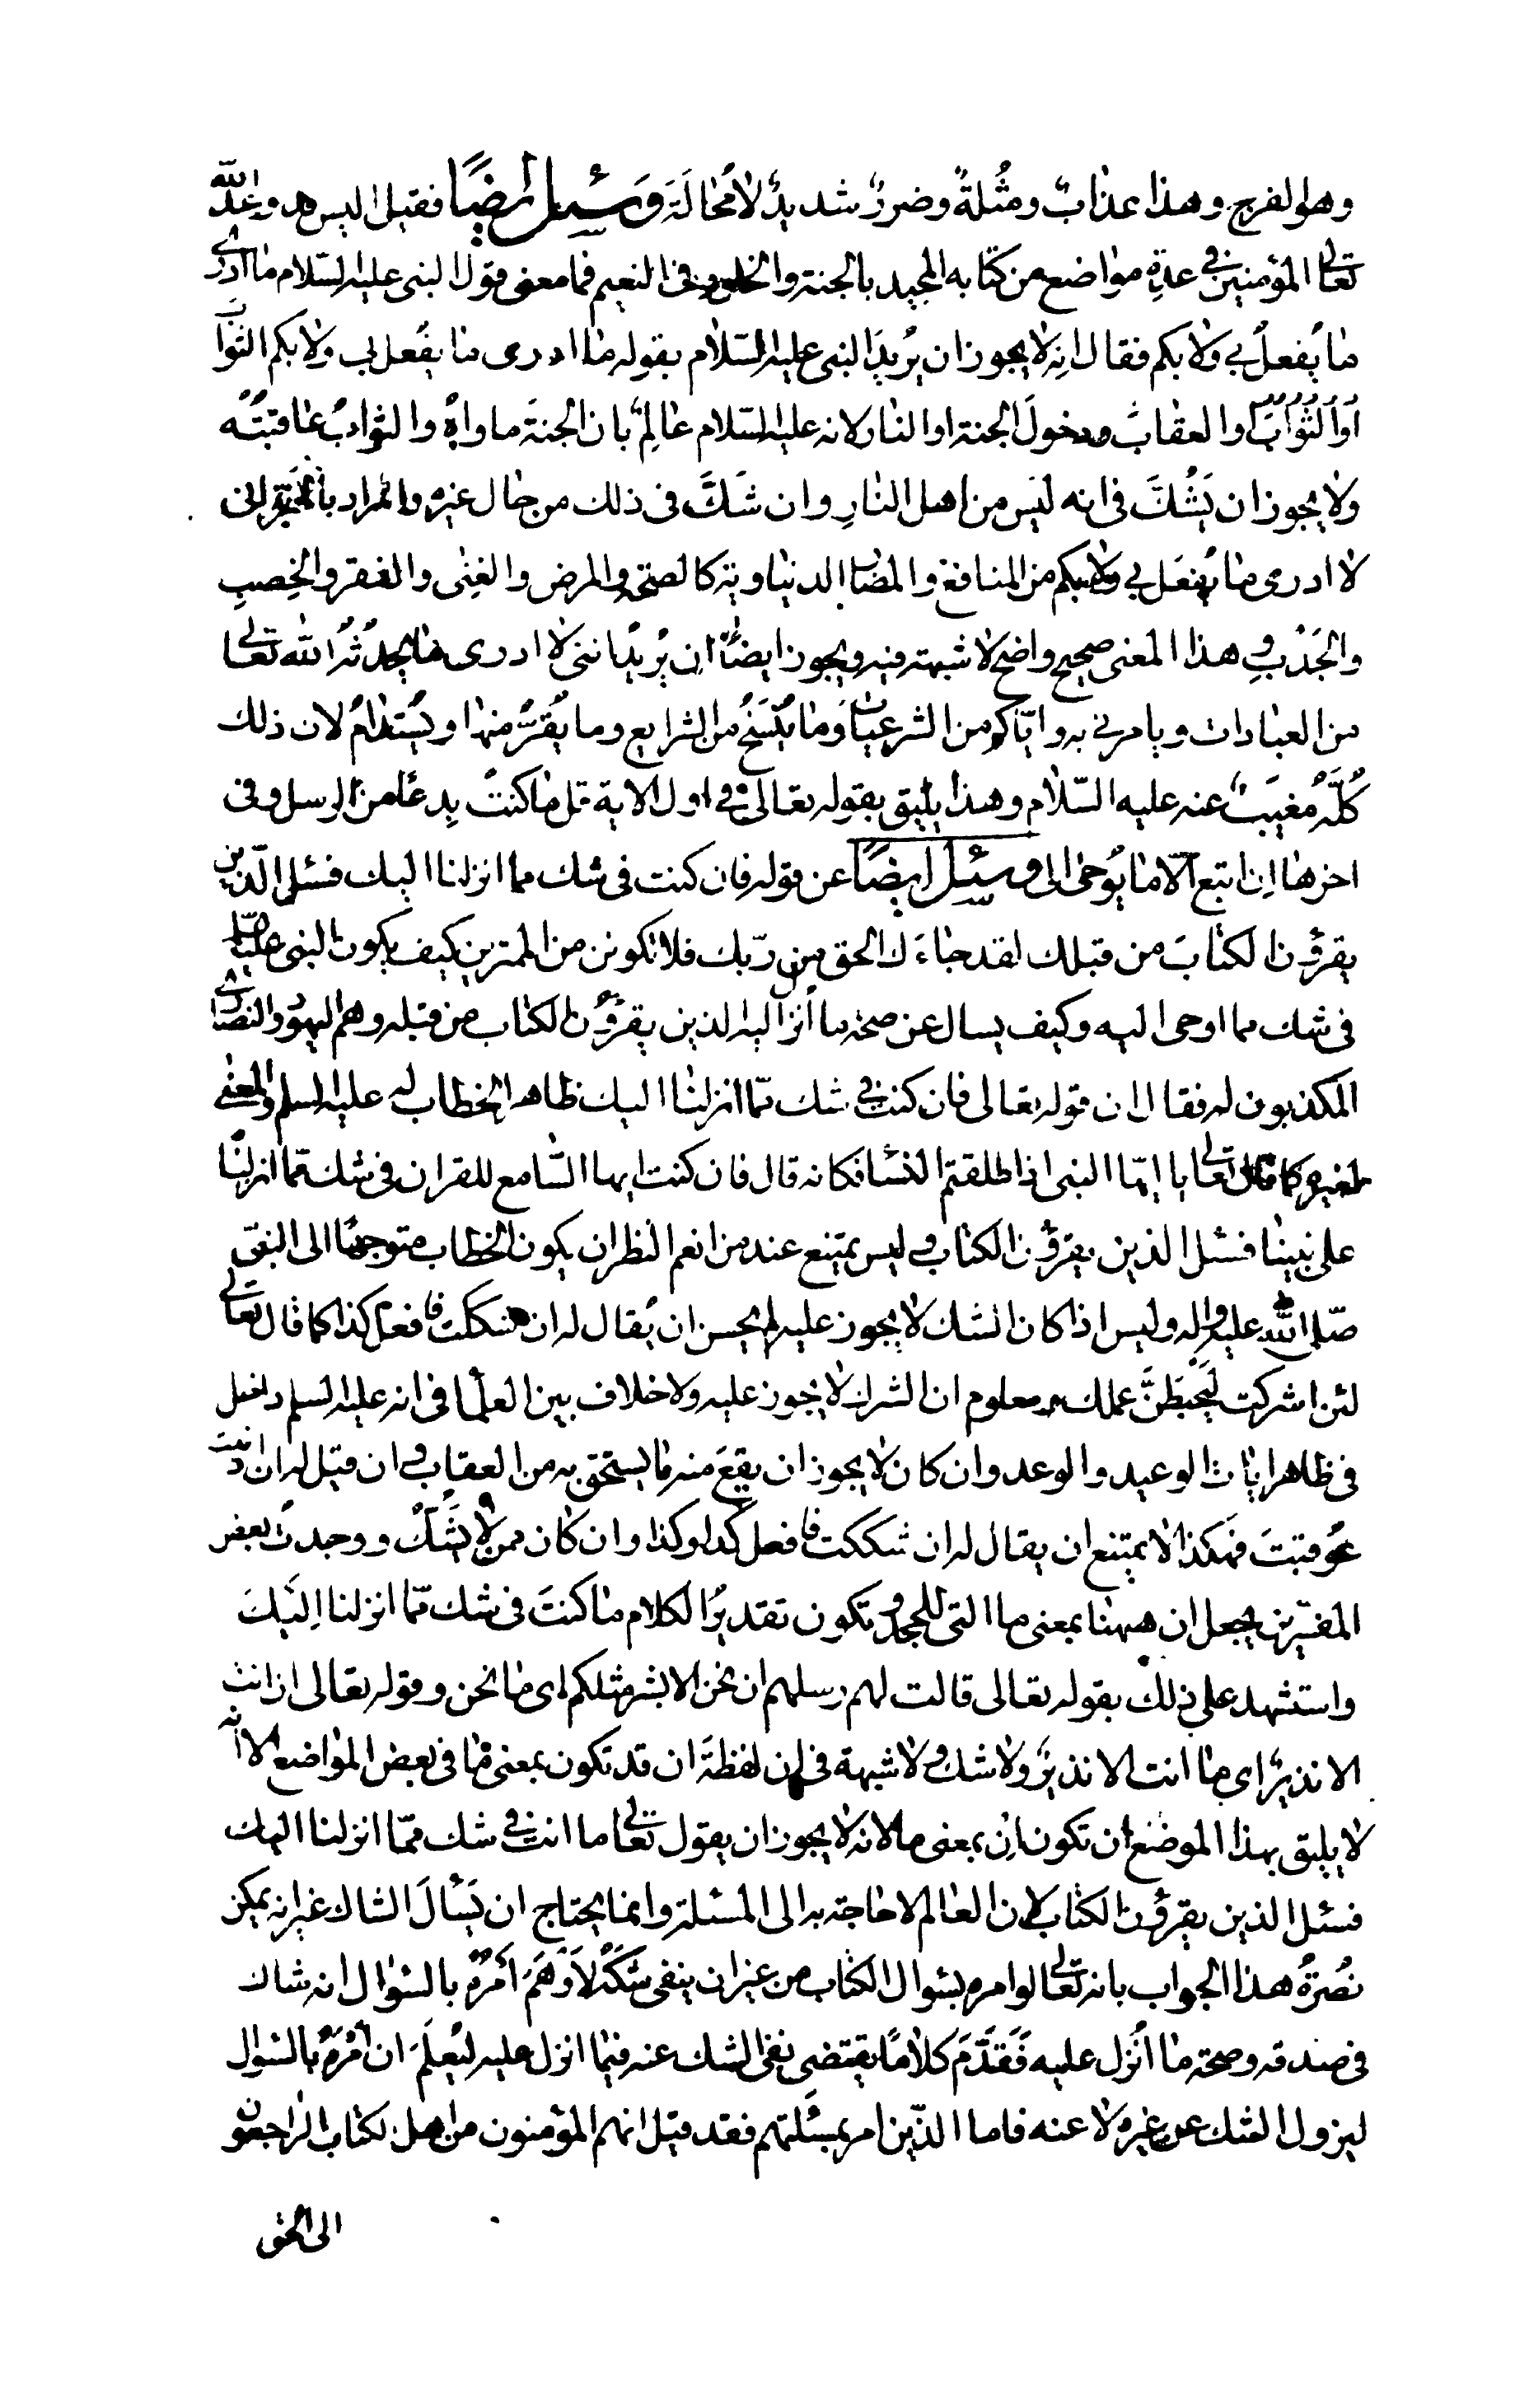 وهو الفرج وهذا عذابٌ ومُثلةٌ وضررٌ شديدٌ لا مُحالَةَ وَسُئِل ايضًا فقيل اليس قد وعد الله
تعالى المؤمنين في عدةِ مواضع من كتابه المجيد بالجنة والخلود في النعيم فما معنى قول النبى عليه السّلام ما ادرى
ما يُفعلُ بي ولا بكم فقال انه لا يجوز ان يُريدَ النبى عليه السّلام بقوله ما ادرى ما يُفعل بي ولا بكم الثوا
اَوْ الثوابَ والعقابَ ودخولَ الجنة او النار لانه عليه السّلام عالِمٌ بان الجنةَ ماواهُ والثوابَ عاقبتُه
ولا يجوز ان يَشُكَّ فى انه ليس من اهل النارِ وان شَكَّ فى ذلك من حال غيره والمراد بالاية اننى
لا ادرى ما يُفعَل بي ولا بكم من المنافع والمضار الدنياوية كالصحة والمرض والغِنى والفقر والخِصبِ
والجَدْبِ وهذا المعنى صحيح واضح لا شبهة فيه ويجوز ايضًا ان يُريدَ اننى لا ادرى ما يُحدِثُه الله تعالى
من العبادات ويامرنى به وايّاكم من الشرعيات وما يُنسَخُ من الشرايع وما يُقرُّ منها ويُستدامُ لان ذلك
كُلَّهُ مُغيبٌ عنه عليه السّلام وهذا يليق بقوله تعالى في اول الاية قل ما كنتُ بِدعًا من الرسل وفى
اخرها اِن اتبع الّا ما يُوحى الى وسُئِل ايضًا عن قوله فان كنت فى شك مما انزلنا اليك فسئل الّذين
يقرؤن الكتابَ من قبلك لقد جاءَك الحق من ربّك فلا تكونن من الممترين كيف يكون النبى عليه السلم
فى شك مما اوحى اليه وكيف يسال عن صحة ما اُنزل اليه الذين يقرؤُن الكتاب من قبله وهم اليهود والنصارى
المكذبون له فقال ان قوله تعالى فان كنت في شك ممّا انزلنا اليك ظاهر الخطاب له عليه السلم والمعنى
لغيره كما قال تعالى يا ايّها النبى اذا طلقتم النسا فكانه قال فان كنت ايها السّامع للقران فى شك ممّا انزلنا
على نبينا فسئل الذين يقرؤن الكتاب وليس يمتنع عند من انعم النظر ان يكون الخطاب متوجهًا الى النبى
صلى الله عليه واله وليس اذا كان الشك لا يجوز عليه لم يحسن ان يُقال له ان شككت فافعل كذا كما قال تعالى
لئن اشركت لَيَحْبَطَنَّ عملك ومعلوم ان الشرك لا يجوز عليه ولا خلاف بين العلما فى انه عليه السلم داخل
فى ظاهر ايات الوعيد والوعد وان كان لا يجوز ان يقعَ منه ما يستحق به من العقاب وان قيل له ان اذنبت
عُوقبتَ فهكذا لا يمتنع ان يقال له ان شككت فافعل كذا وكذا وان كان ممن لا يشُكُّ ووجدتُ بعض
المفسّرين يجعل ان ههنا بمعنى ما التى للجحد وتكون تقديرُ الكلام ما كنتَ فى شك ممّا انزلنا اِلَيْكَ
واستشهد على ذلك بقوله تعالى قالت لهم رسلهم ان نحن الا بشر مثلكم اى ما نحن وقوله تعالى ان انت
الا نذيرٌ اى ما انت الا نذيرٌ ولا شك ولا شبهة فى ان لفظةَ ان قد تكون بمعنى ما فى بعض المواضع الا انه
لا يليق بهذا الموضع ان تكون اِن بمعنى ما لانه لا يجوز ان يقول تعالى ما انت في شك ممّا انزلنا اليك
فسئل الذين يقرؤن الكتاب لان العالم لا حاجة به الى المسئلة وانما يحتاج ان يَسْاَلَ الشاك غير انه يمكن
نُصرةُ هذا الجواب بانه تعالى لو امره بسُوال الكتاب من غير ان ينفى شكَّهُ لَاَوْهَمَ اَمرُهُ بالسُوال انه شاك
فى صدقه وصحة ما اُنزل عليه فَقَدَّمَ كلامًا يقتضى نفى الشك عنه فيما انزل عليه ليُعلَمَ ان اَمْرَهُ بالسُوال
ليزول الشك عن غيره لا عنه فاما الذّين امر بمسئَلتهم فقد قيل انهم المؤمنون من اهل الكتاب الراجعون
الى الحق